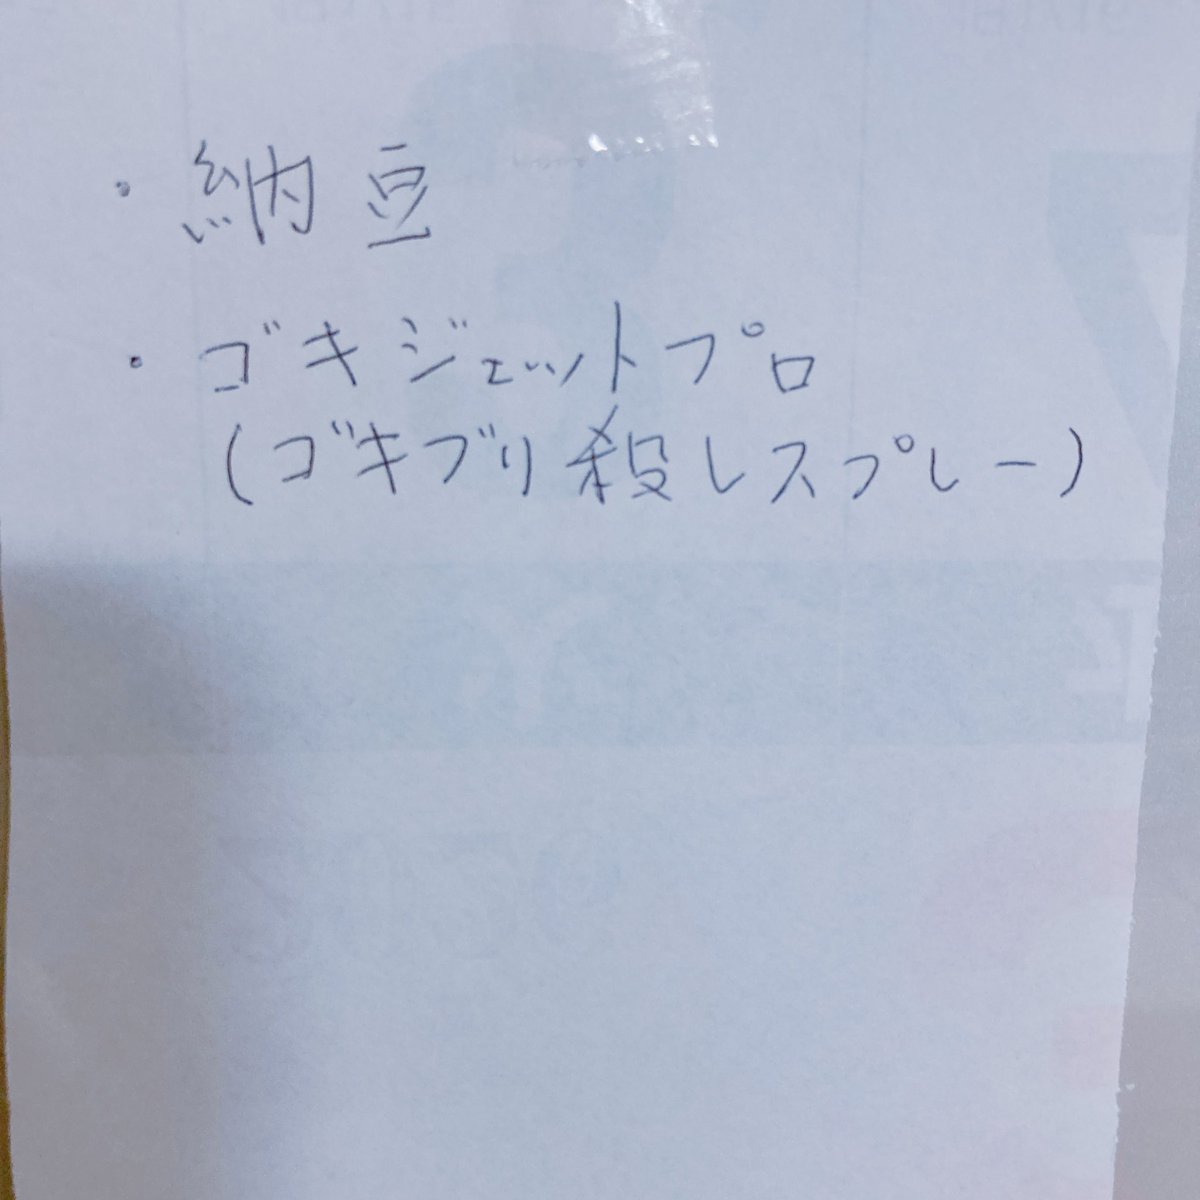 ・納豆
・ゴキジェットプロ
(ゴキブリ殺しスプレー)